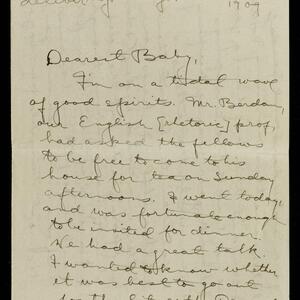 1909
Dearest Baby,
I'm on a tidal wave
of good spirits. Mr. Berdan,
our English [rhetoric] prof,
had asked the fellows
to be free to come to his
house for tea on Sunday
afternoons. I went today,
and was fortunate enough
to be invited for dinner.
We had a great talk.
I wanted to know whether
it was best to go out
for the